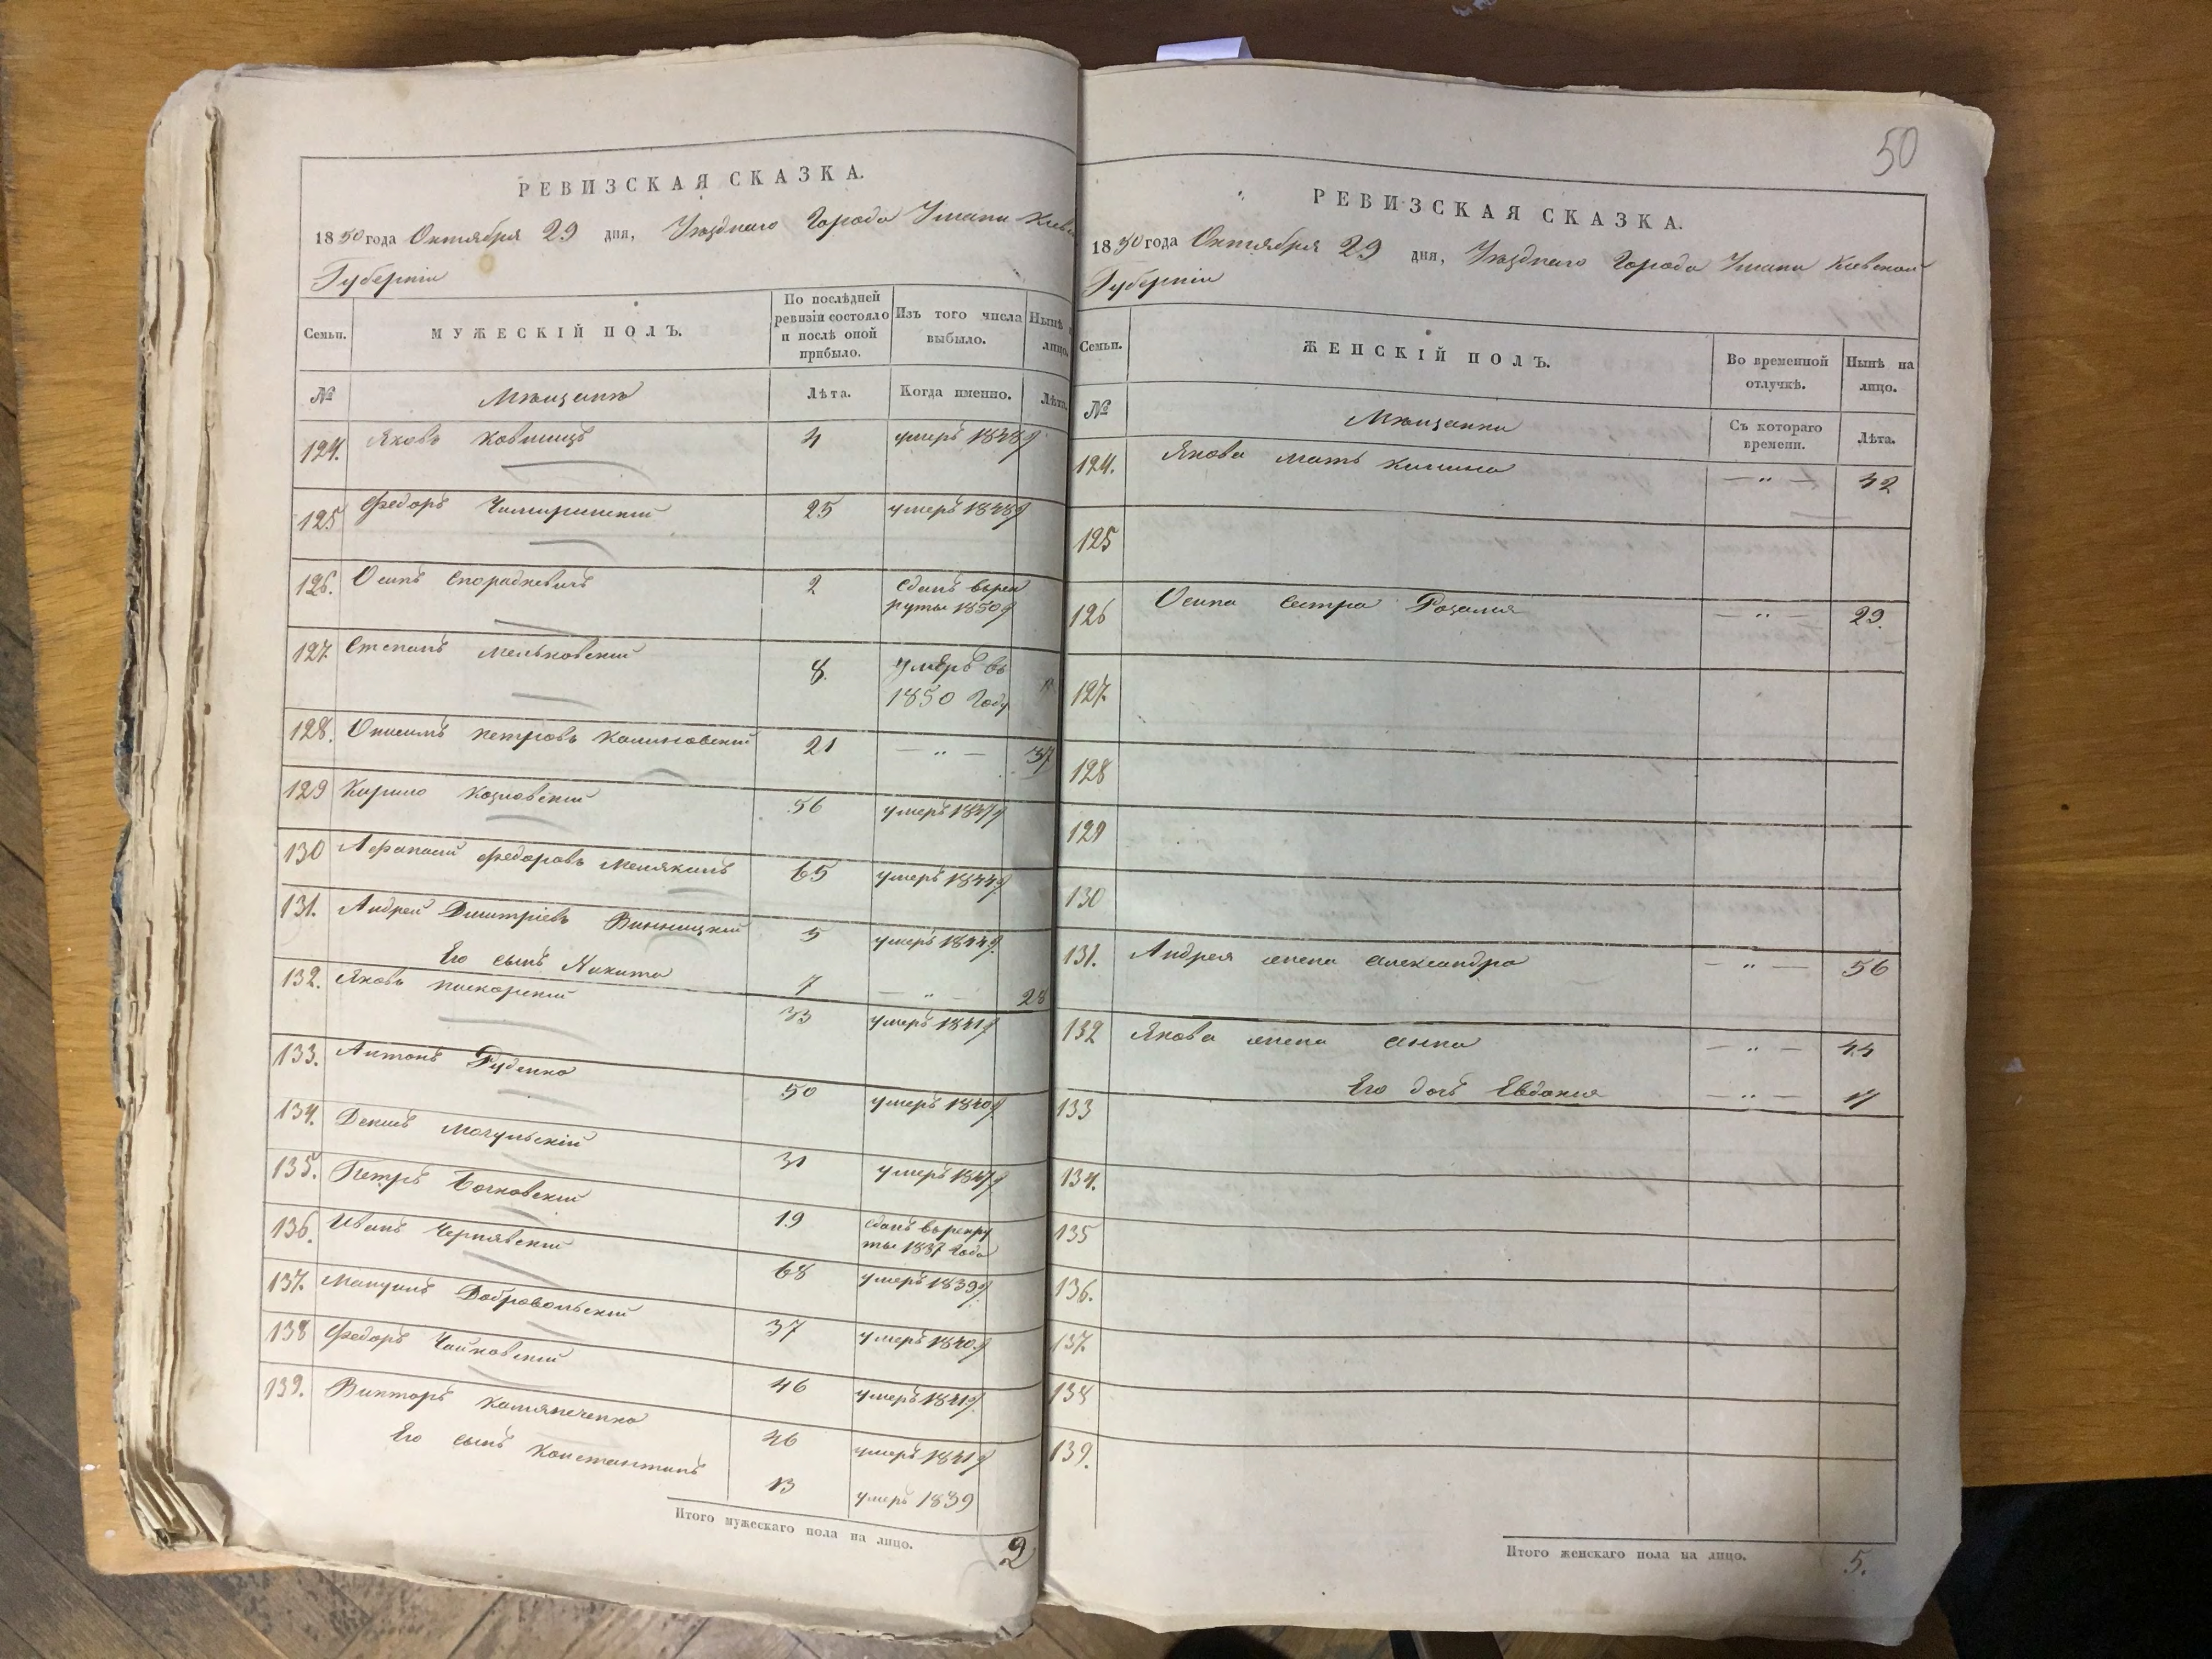 РЕВИЗСКАЯ СКАЗКА.
1850 года Октября 29 дня, Уезднаго Города Умани
Губерніи
Семьи. МУЖЕСКІЙ ПОЛЪ. По послѣдней ревизіи состояло и послѣ оной прибыло. Изъ того числа выбыло. Нынѣ лицо.
№ Мѣщане Лѣта. Когда именно. Лѣта.
124. Яковъ 4 умеръ 1848
125 Федоръ 25 умеръ 1848
126. Осипъ 2 Сданъ въ рек
руты 1850
127. Степанъ Мельковский 8. умеръ въ
1850 Году
128. Онисимъ Петровъ Калиновский 21 — „ — 37
129 Кирило Козловский 56 умеръ 1847
130 Афанасий Федоровъ 65 умеръ 1844
131. Андрей Дмитріевъ Винницкий 5 умеръ 1844
Его сынъ Никита 7 — „ — 28
132. Яковъ 33 умеръ 1841
133. Антонъ Руденко 50 умеръ 1840
134. Денисъ Могульскій 31 умеръ 1847
135. Петръ Бочковский 19 Сданъ въ рекру
ты 1837 Года
136. Иванъ Чернявский 68 умеръ 1839
137. Мануилъ Добровольский 37 умеръ 1840
138 Федоръ Чайковский 46 умеръ 1841
139. Викторъ 46 умеръ 1841
Его сынъ Константинъ 13 умеръ 1839
Итого мужескаго пола на лицо. 2
50
РЕВИЗСКАЯ СКАЗКА.
1850 года Октября 29 дня, Уезднаго Города Умани Киевской
Губерніи
Семьи. ЖЕНСКІЙ ПОЛЪ. Во временной отлучкѣ. Нынѣ на лицо.
№ Мѣщанки Съ котораго времени. Лѣта.
124. Якова мать — „ — 42
125
126 Осипа сестра Розалия — „ — 29.
127.
128
129
130
131. Андрея жена Александра — „ — 56
132 Якова жена Анна — „ — 44
Его дочь Евдокия — „ —
133
134.
135
136.
137.
138
139.
Итого женскаго пола на лицо. 5.